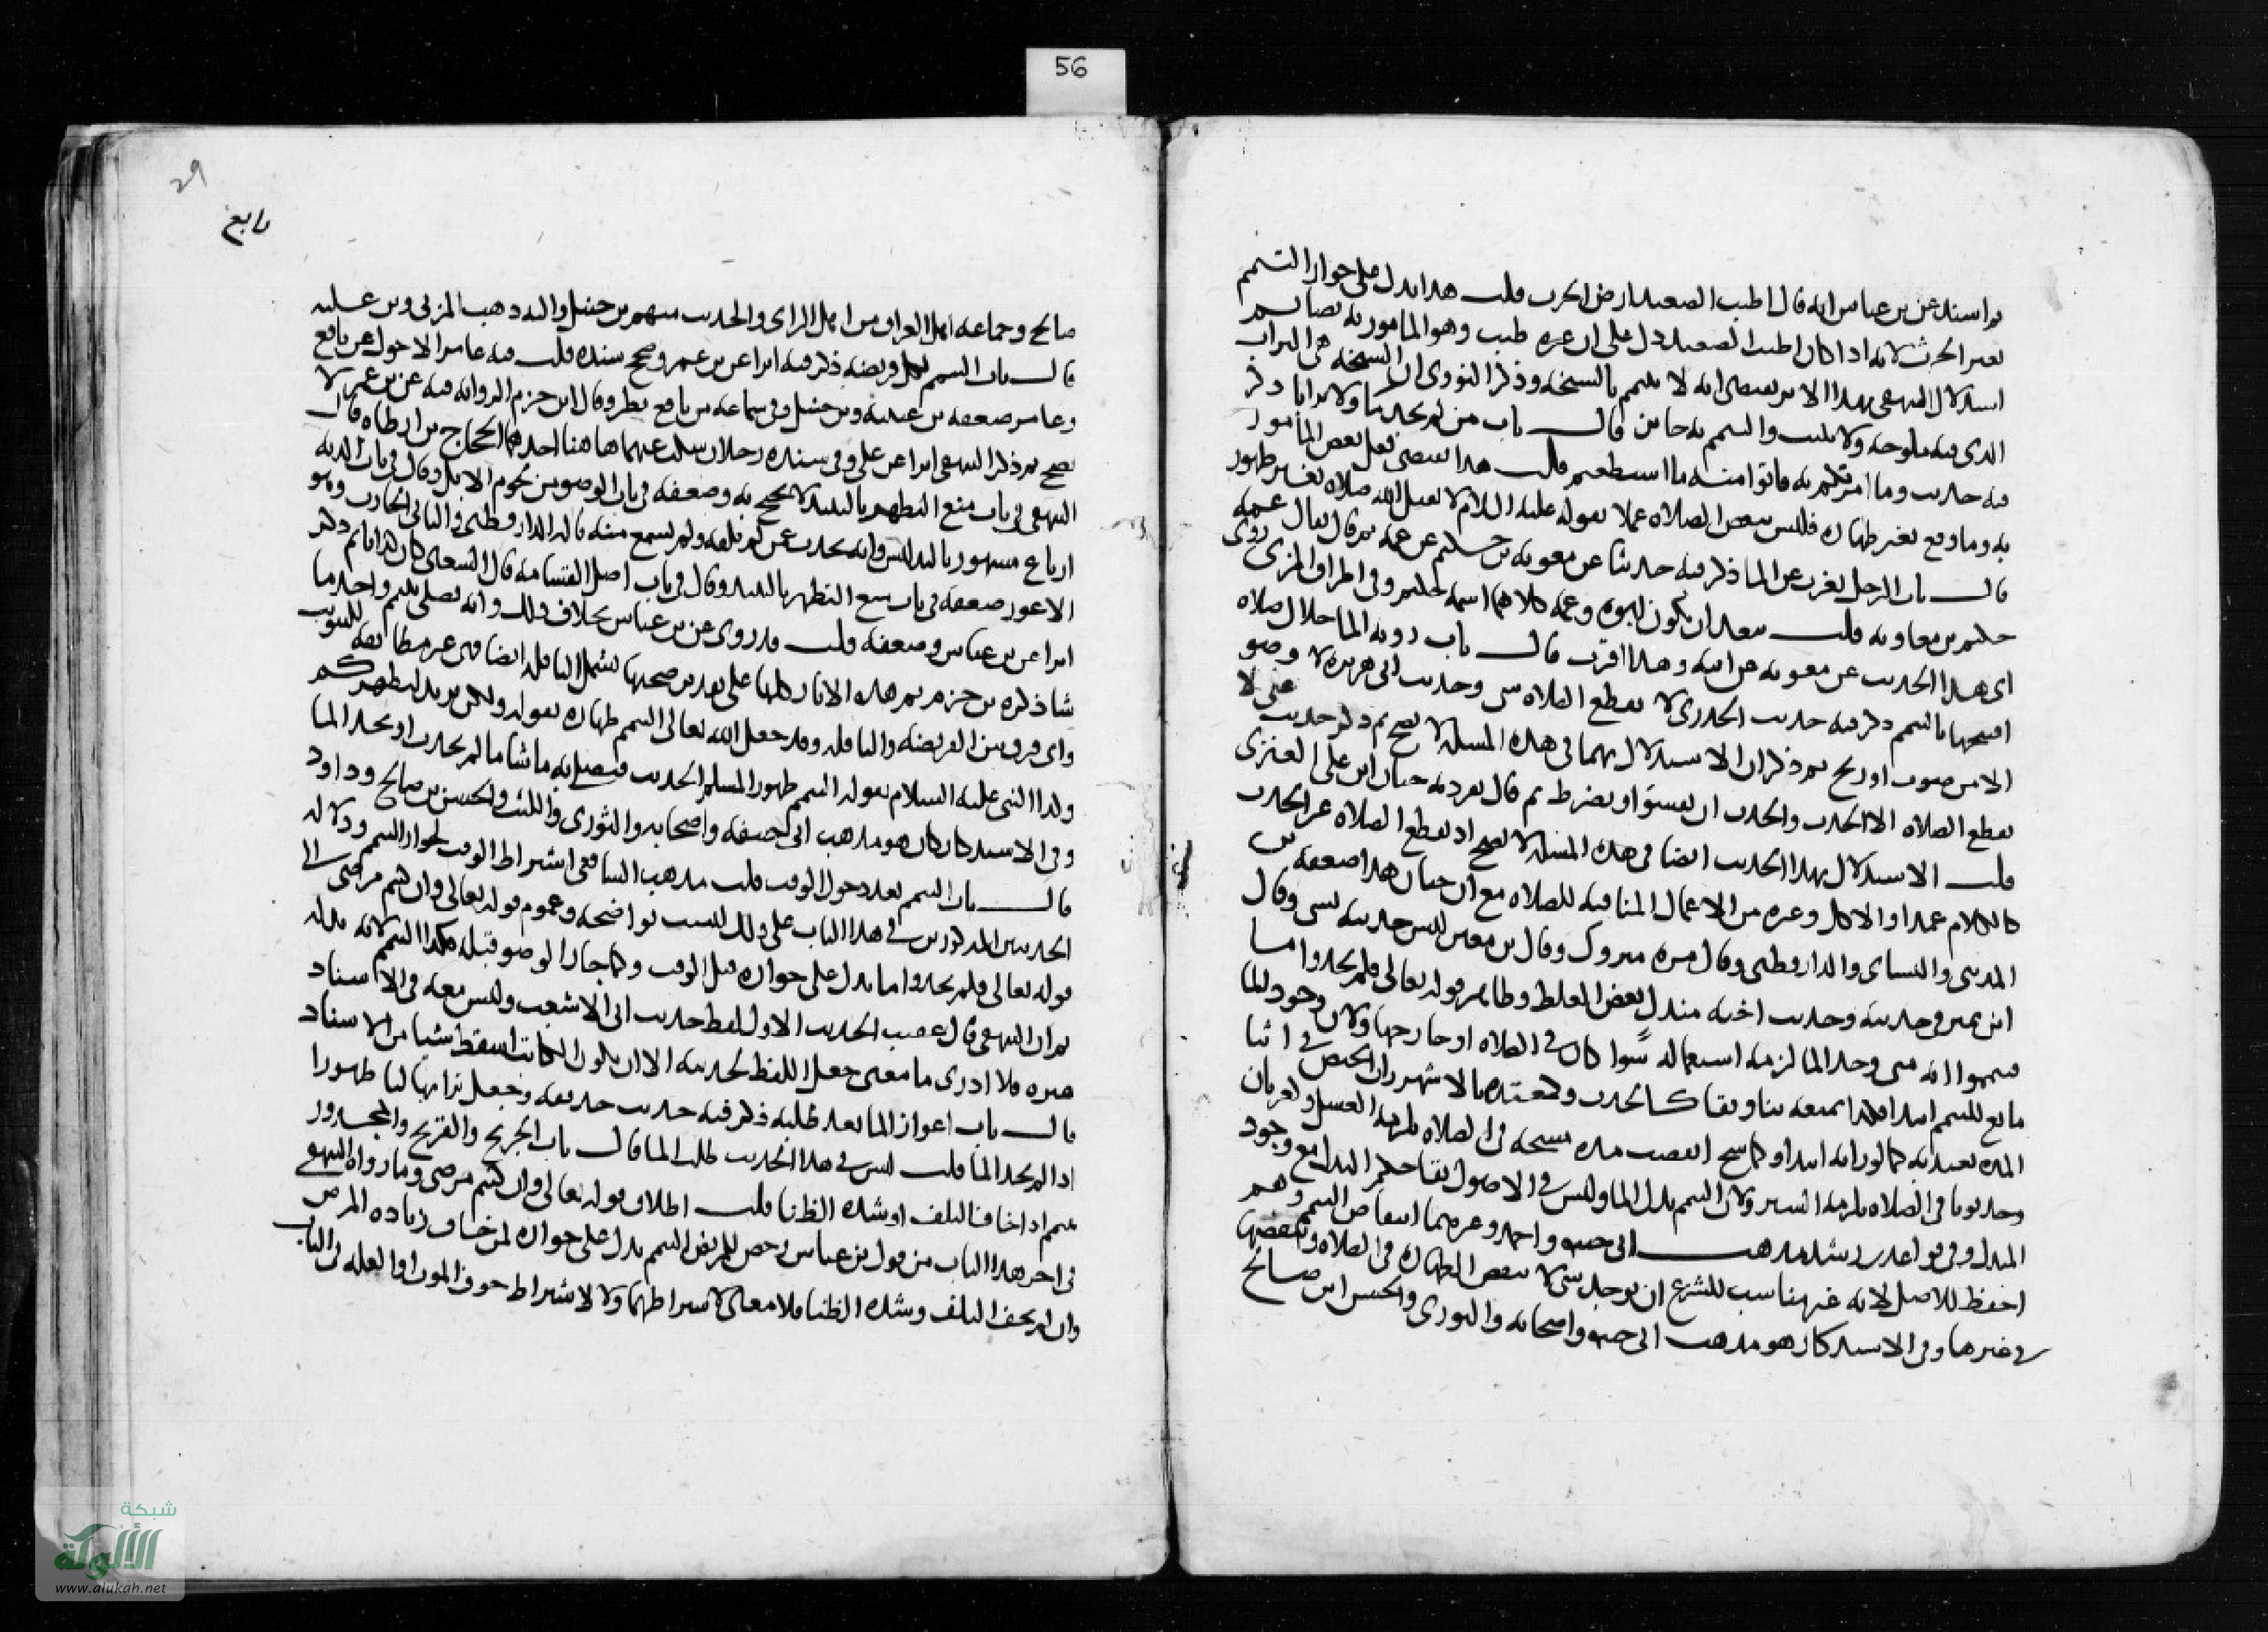 56
ثم اسند عن بن عباس انه قال اطيب الصعيد ارض الحرث قلت هذا يدل على جواز التيمم
بغير الحرث لانه اذا كان اطيب الصعيد دل على ان غيره طيب وهو المامور به نصا ثم
استدلال البيهقي بهذا الاثر يقتضي انه لا يتيمم بالسبخة وذكر النووي ان السبخة هي التراب
الذي فيه ملوحة ولا ينبت والتيمم به جائز قال باب من لم يجد ماء ولا ترابا ذكر
فيه حديث وما امرتكم به فاتوا منه ما استطعتم قلت هذا يقتضي فعل بعض المامور
به وما وقع بغير طهارة فليس ببعض الصلاة عملا بقوله عليه السلام لا يقبل الله صلاة بغير طهور
قال باب الرجل يعزب عن الماء ذكر فيه حديثا عن معوية بن حكيم عن عمه ثم قال يقال عمه
حكيم بن معاوية قلت يبعد ان يكون ابوه وعمه كلاهما اسمه حكيم وفي اطراف المزي روى
اي هذا الحديث عن معوية عن ابيه وهذا اقرب قال باب رؤية الماء خلال صلاة
افتتحها بالتيمم ذكر فيه حديث الخدري لا يقطع الصلاة شي وحديث ابي هريرة لا وضو
الا من صوت او ريح ثم ذكر ان الاستدلال بهما في هذه المسئلة لا يصح ثم ذكر حديث علي لا
يقطع الصلاة الا الحدث والحدث ان يفسو او يضرط ثم قال تفرد به حبان ابن علي العنزي
قلت الاستدلال بهذا الحديث ايضا في هذه المسئلة لا يصح اذ يقطع الصلاة غير الحدث
كالكلام عمدا والاكل وغيره من الاعمال المنافية للصلاة مع ان حبان هذا ضعفه بن
المديني والنساي والدارقطني وقال مرة متروك وقال بن معين ليس حديثه بشي وقال
ابن نمير في حديثه وحديث اخيه مندل بعض الغلط وظاهر قوله تعالى فلم تجدوا ماء
فتيمموا انه متى وجد الماء لزمه استعماله سوا كان في الصلاة او خارجها ولان وجود الماء
مانع للتيمم ابتداء فكذا يمنعه بناء وبقاء كالحدث وكمعتدة بالاشهر رات الحيض في اثنا
المدة تعتد به كما لو راته ابتداء وكماسح انقضت مدة مسحه في الصلاة يلزمه الغسل ولعريان
وجد ثوبا في الصلاة يلزمه الستر ولان التيمم بدل الماء وليس في الاصول بقاء حكم البدل مع وجود
المبدل وفي قواعد بن رشد مذهب ابي حنيفة واحمد وغيرهما انتقاض التيمم وهم
احفظ للاصل لانه غير مناسب للشرع ان يوجد شي لا ينقض الطهارة في الصلاة وينقضها
في غيرها وفي الاستذكار هو مذهب ابي حنيفة واصحابه والثوري والحسن ابن صالح
29
تابع
صالح وجماعة اهل العراق من اهل الراي والحديث منهم بن حنبل واليه ذهب المزني وبن علية
قال باب التيمم لكل فريضة ذكر فيه اثرا عن بن عمر وصحح سنده قلت فيه عامر الاحول عن نافع
وعامر ضعفه بن عيينة وبن حنبل وفي سماعه من نافع نظر وقال ابن حزم الرواية فيه عن بن عمر لا
تصح ثم ذكر البيهقي اثرا عن علي وفي سنده رجلان سكت عنهما هاهنا احدهما الحجاج بن ارطاه قال
البيهقي في باب منع التطهير بالنبيذ لا يحتج به وضعفه في باب الوضوء من لحوم الابل وقال في باب الدية
ارباع مشهور بالتدليس وانه يحدث عن من لم يلقه ولم يسمع منه قاله الدارقطني والثاني الحارث وهو
الاعور ضعفه في باب منع التطهر بالنبيذ وقال في باب اصل القسامة قال الشعبي كان كذابا ثم ذكر
اثرا عن بن عباس وضعفه قلت قد روي عن بن عباس بخلاف ذلك وانه يصلي بتيمم واحد ما
شا ذكره بن حزم ثم هذه الاثار كلها على تقدير صحتها تشمل النافلة ايضا فهي غير مطابقة للتبويب
واي فرق بين الفريضة والنافلة وقد جعل الله تعالى التيمم طهارة بقوله ولكن يريد ليطهركم
ولذا النبي عليه السلام بقوله التيمم طهور المسلم الحديث فيصلي به ما شا ما لم يحدث او يجد الماء
وفي الاستذكار كان هو مذهب ابي حنيفة واصحابه والثوري والليث والحسن بن صالح وداود
قال باب التيمم بعد دخول الوقت قلت مذهب الشافعي اشتراط الوقت لجواز التيمم ودلالة
الحديثين المذكورين في هذا الباب على ذلك ليست بواضحة وعموم قوله تعالى وان كنتم مرضى الى
قوله تعالى فلم تجدوا ماء يدل على جوازه قبل الوقت وكما جاز الوضو قبله فكذا التيمم لانه بدله
ثم ان البيهقي قال عقيب الحديث الاول لفظ حديث ابي الاشعث وليس معه في الاسناد
غيره فلا ادري ما معنى جعل اللفظ لحديثه الا ان يكون الكاتب اسقط شيا من الاسناد
قال باب اعواز الماء بعد طلبه ذكر فيه حديث حذيفة وجعل ترابها لنا طهورا
اذا لم نجد الماء قلت ليس في هذا الحديث طلب الماء قال باب الجريح والقريح والمجدور
يتيمم اذا خاف التلف او شدة الضنا قلت اطلاق قوله تعالى وان كنتم مرضى وما رواه البيهقي
في اخر هذا الباب من قول بن عباس رخص للمريض التيمم يدل على جوازه لمن خاف زيادة المرض
وان لم يخف التلف وشدة الضنا فلا معنى لاشتراطهما ولا لاشتراط خوف الموت او العلة في الباب
شبكة
الألوكة
www.alukah.net